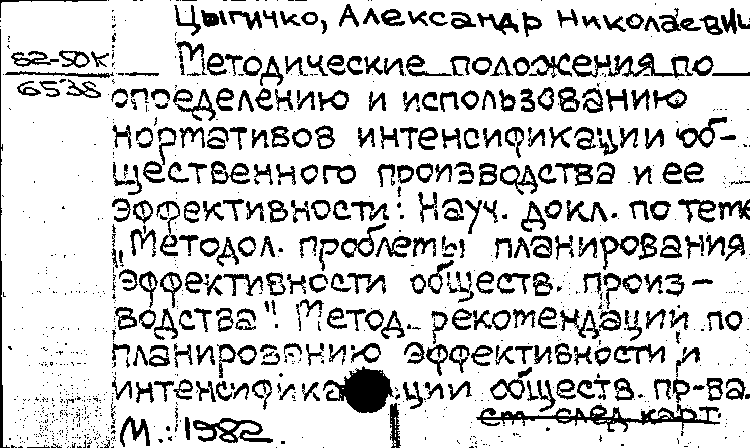 Цыгичко, Александр Николаевич
82-50К
6538
Методические положения по
определению и использованию
нормативов интенсификации об-
щественного производства и ее
эффективности: Науч. докл. по теме
„Методол. проблемы планирования
эффективности обществ. произ-
водства". Метод. рекомендаций по
планированию эффективности и
интенсификации обществ. пр-ва.
см. след. карт.
М.: 1982.